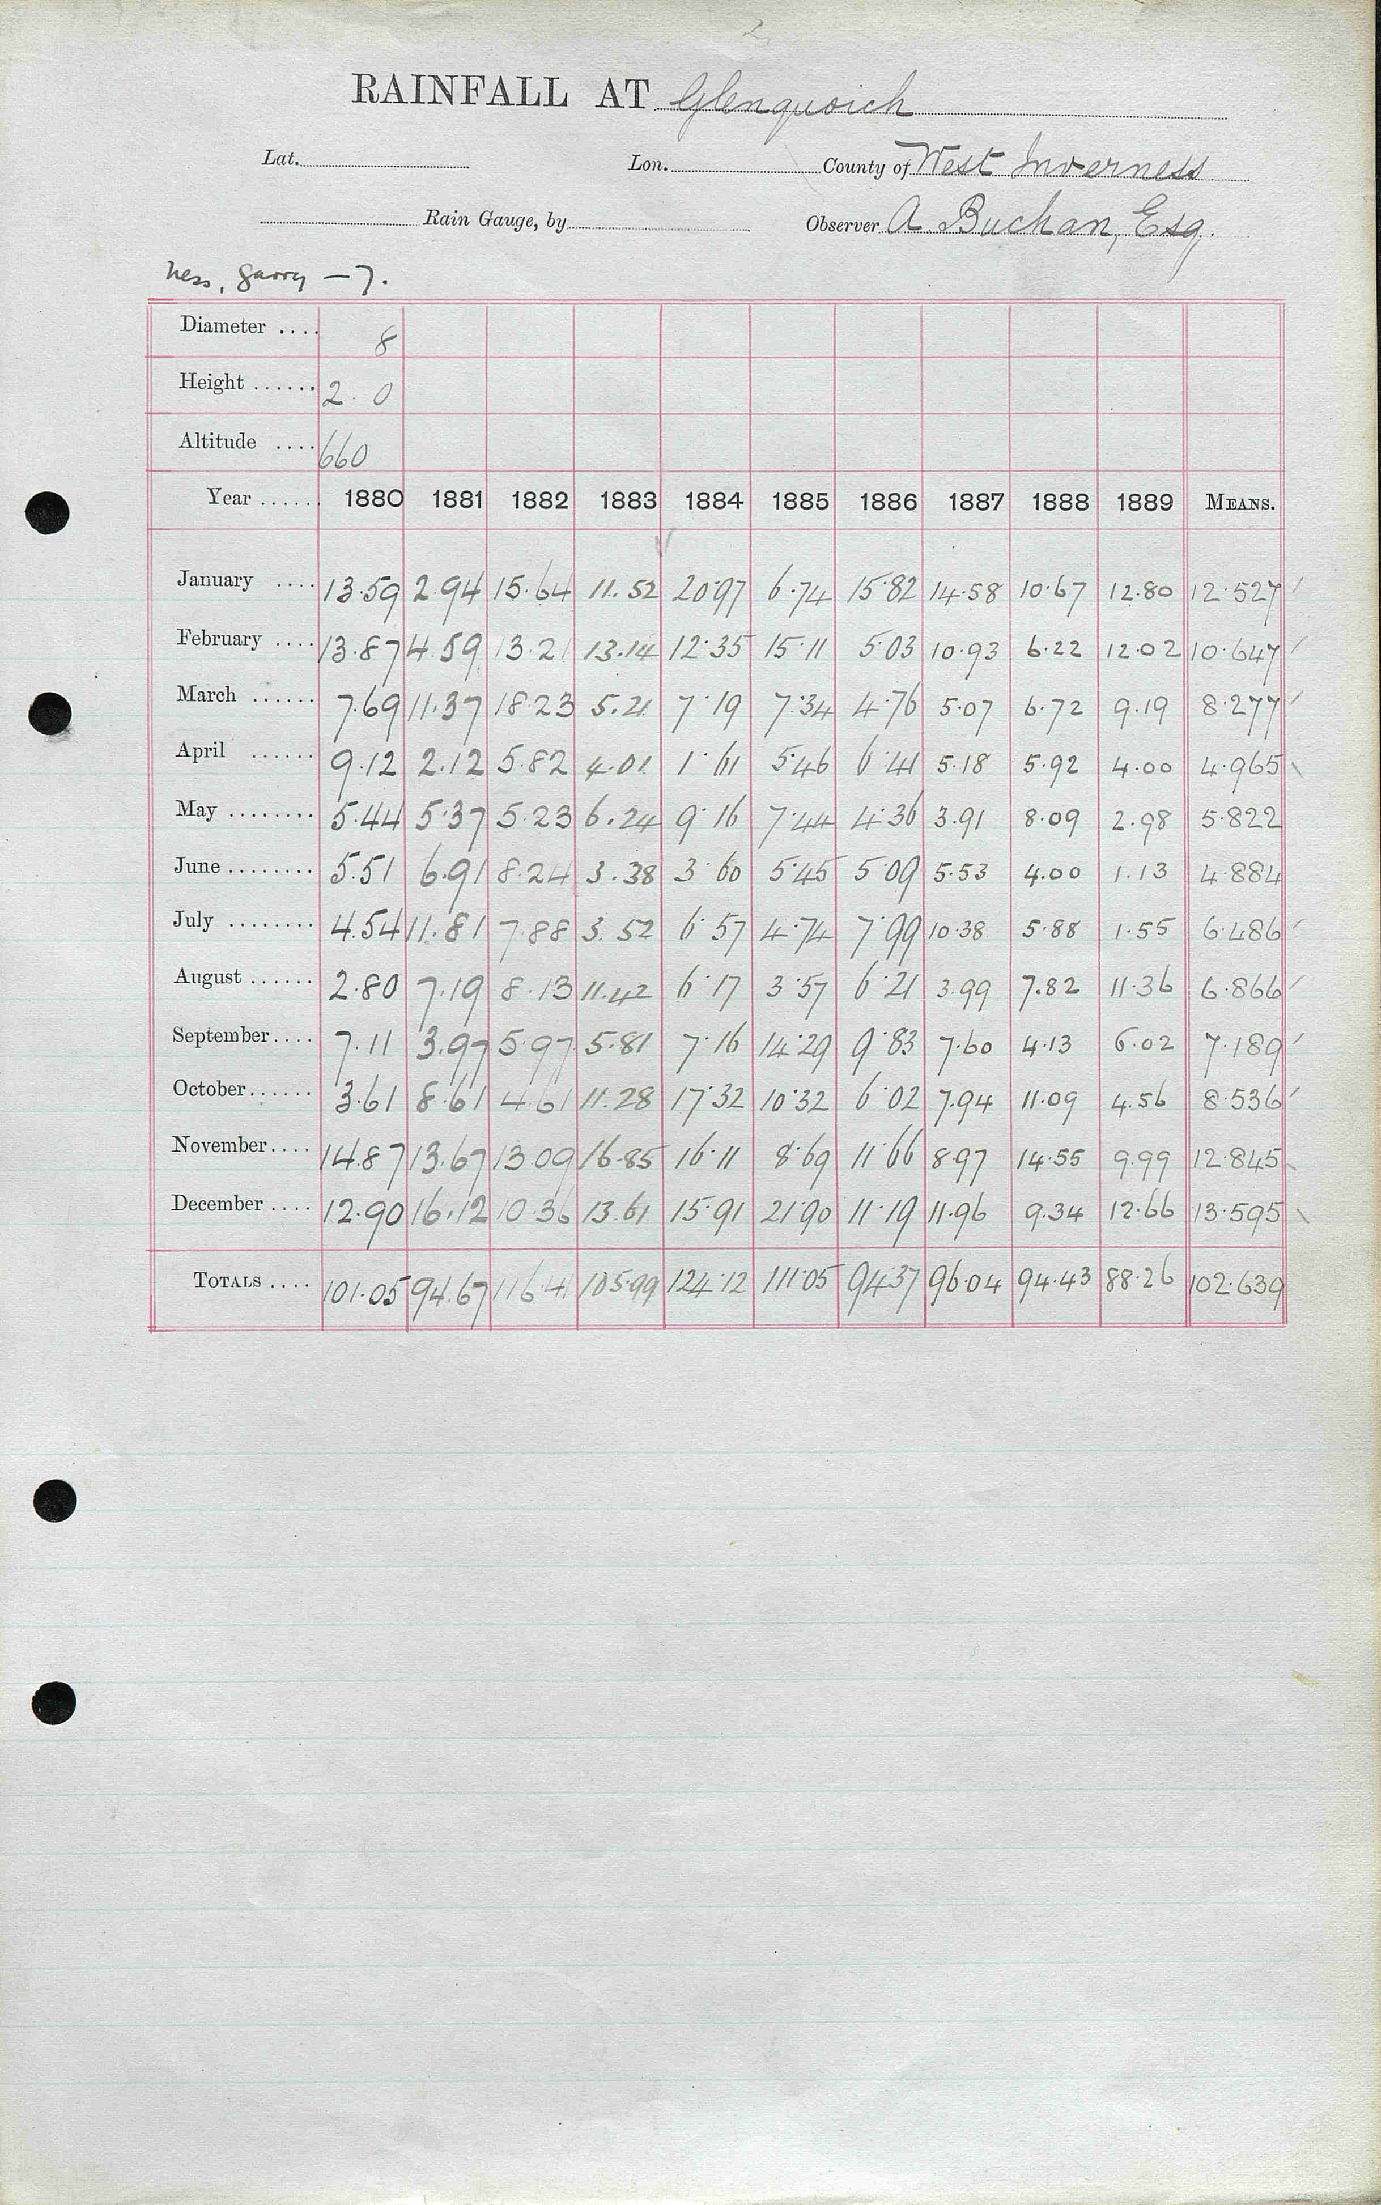 RAINFALL AT Glenquoich
Lat. Lon. County of West Inverness
Rain Gauge, by Observer A Buchan, Esq.
Ness, Garry – 7.
Diameter .... 8
Height ...... 2. 0
Altitude .... 660
Year ...... 1880 1881 1882 1883 1884 1885 1886 1887 1888 1889 MEANS.
January .... 13.59 2.94 15.64 11.52 20.97 6.74 15.82 14.58 10.67 12.80 12.527
February .... 13.87 4.59 13.21 13.14 12.35 15.11 5.03 10.93 6.22 12.02 10.647
March ...... 7.69 11.37 18.23 5.21 7.19 7.34 4.76 5.07 6.72 9.19 8.277
April ...... 9.12 2.12 5.82 4.01 1.61 5.46 6.41 5.18 5.92 4.00 4.965
May ........ 5.44 5.37 5.23 6.24 9.16 7.44 4.36 3.91 8.09 2.98 5.822
June ........ 5.51 6.91 8.24 3.38 3.60 5.45 5.09 5.53 4.00 1.13 4.884
July ........ 4.54 11.81 7.88 3.52 6.57 4.74 7.99 10.38 5.88 1.55 6.486
August ...... 2.80 7.19 8.13 11.42 6.17 3.57 6.21 3.99 7.82 11.36 6.866
September .... 7.11 3.97 5.97 5.81 7.16 14.29 9.83 7.60 4.13 6.02 7.189
October ...... 3.61 8.61 4.61 11.28 17.32 10.32 6.02 7.94 11.09 4.56 8.536
November .... 14.87 13.67 13.09 16.85 16.11 8.69 11.66 8.97 14.55 9.99 12.845
December .... 12.90 16.12 10.36 13.61 15.91 21.90 11.19 11.96 9.34 12.66 13.595
TOTALS .... 101.05 94.67 116.41 105.99 124.12 111.05 94.37 96.04 94.43 88.26 102.639